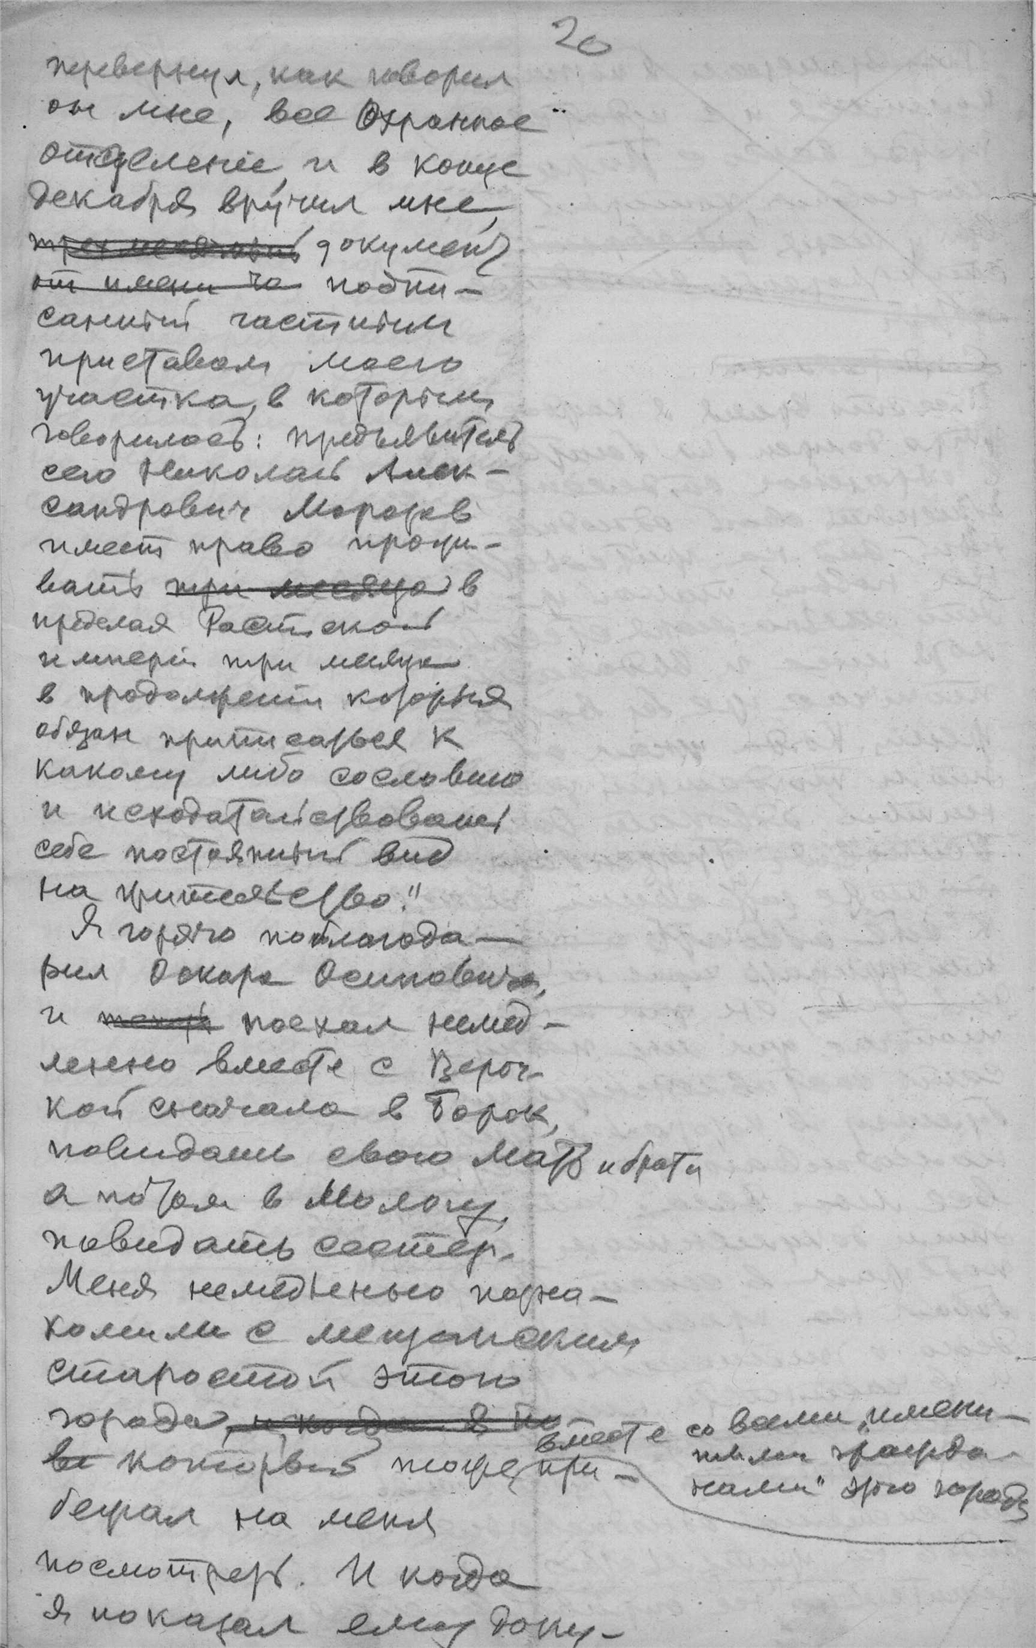 20
перевернул, как говорил
он мне, все Охранное
отделение и в конце
декабря вручил мне,
трехмесячный документ
от имени ча подпи-
санный частным
приставом моего
участка, в котором
говорилось: "предъявитель
сего Николай Алек-
сандрович Морозов
имеет право прожи-
вать три месяца в
пределах Российской
империи три месяца
в продолжении которых
обязан приписаться к
какому либо сословию
и исходатайствовать
себе постоянный вид
на жительство."
Я горячо поблагода-
рил Оскара Осиповича,
и поехал немед-
ленно вместе с Вероч-
кой сначала в Борок,
повидать свою мать и брата
а потом в Мологу,
повидать сестер.
Меня немедленно позна-
комили с мещанским
старостой этого
города, и когда я по
ве который тоже при-
вместе со всеми "имени-
тыми гражда-
нами" этого города
бежал на меня
посмотреть. И когда
я показал ему доку-